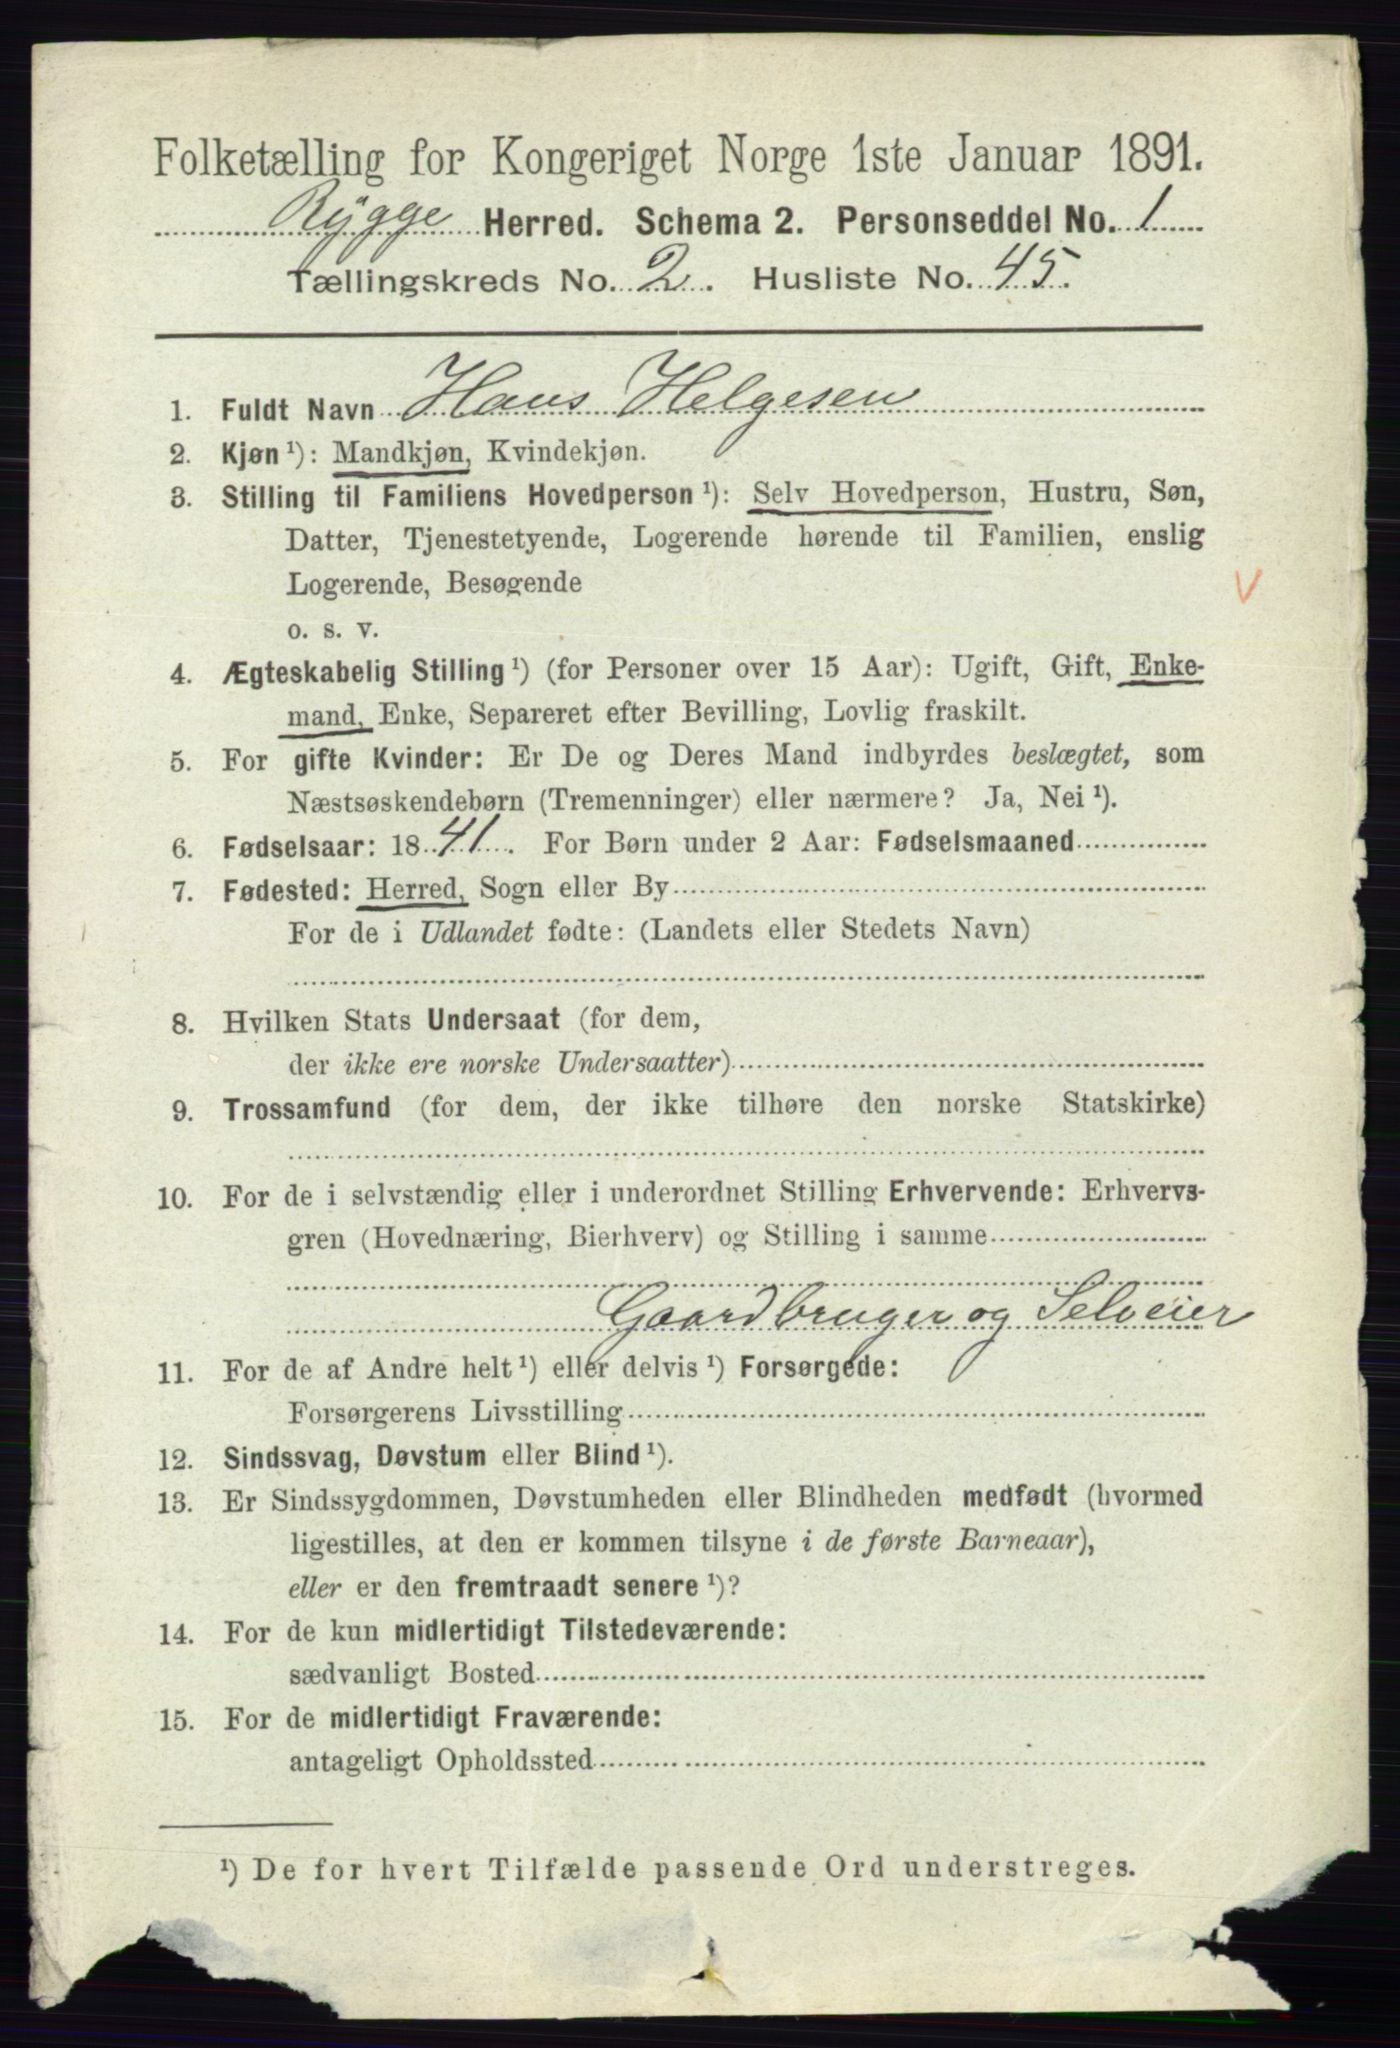 Folketælling for Kongeriget Norge 1ste Januar 1891.
Rygge Herred. Schema 2. Personseddel No. 1
Tællingskreds No. 2. Husliste No. 45.
1. Fuldt Navn Hans Helgesen
2. Kjøn ¹): Mandkjøn, Kvindekjøn.
3. Stilling til Familiens Hovedperson ¹): Selv Hovedperson, Hustru, Søn,
Datter, Tjenestetyende, Logerende hørende til Familien, enslig
Logerende, Besøgende
o. s. v.
V
4. Ægteskabelig Stilling ¹) (for Personer over 15 Aar): Ugift, Gift, Enke-
mand, Enke, Separeret efter Bevilling, Lovlig fraskilt.
5. For gifte Kvinder: Er De og Deres Mand indbyrdes beslægtet, som
Næstsøskendebørn (Tremenninger) eller nærmere? Ja, Nei ¹).
6. Fødselsaar: 1841. For Børn under 2 Aar: Fødselsmaaned
7. Fødested: Herred, Sogn eller By
For de i Udlandet fødte: (Landets eller Stedets Navn)
8. Hvilken Stats Undersaat (for dem,
der ikke ere norske Undersaatter)
9. Trossamfund (for dem, der ikke tilhøre den norske Statskirke)
10. For de i selvstændig eller i underordnet Stilling Erhvervende: Erhvervs-
gren (Hovednæring, Bierhverv) og Stilling i samme
Gaardbruger og Selveier
11. For de af Andre helt ¹) eller delvis ¹) Forsørgede:
Forsørgerens Livsstilling
12. Sindssvag, Døvstum eller Blind ¹).
13. Er Sindssygdommen, Døvstumheden eller Blindheden medfødt (hvormed
ligestilles, at den er kommen tilsyne i de første Barneaar),
eller er den fremtraadt senere ¹)?
14. For de kun midlertidigt Tilstedeværende:
sædvanligt Bosted
15. For de midlertidigt Fraværende:
antageligt Opholdssted
¹) De for hvert Tilfælde passende Ord understreges.